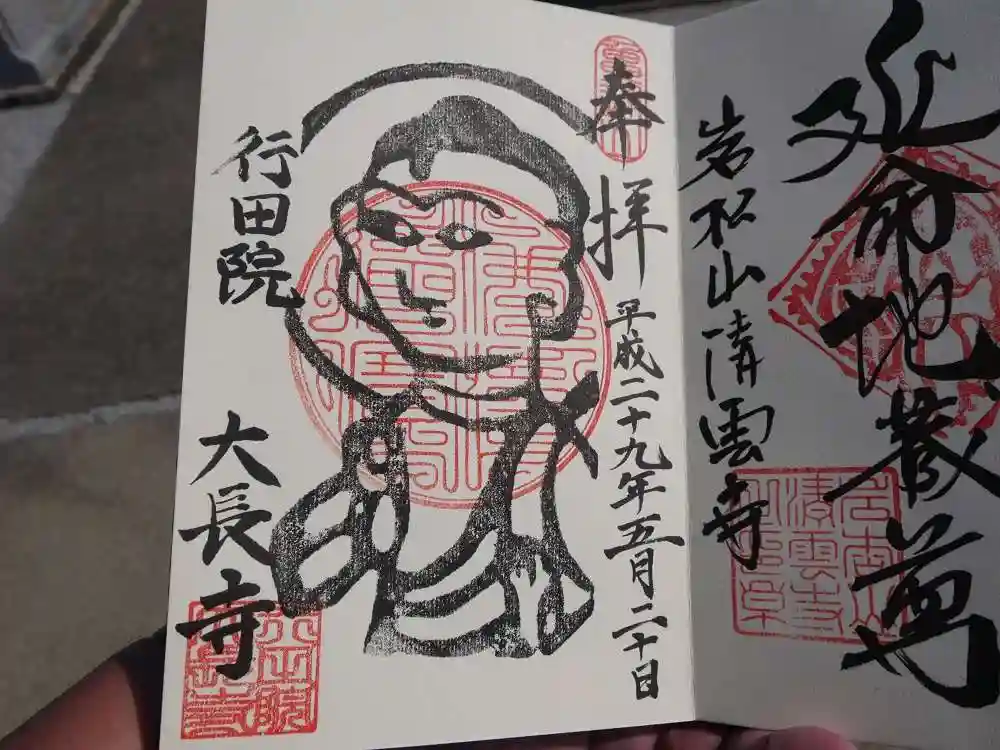 延命地蔵尊
岩松山清雲寺
奉拝
平成二十九年五月二十日
行田院
大長寺
清雲寺